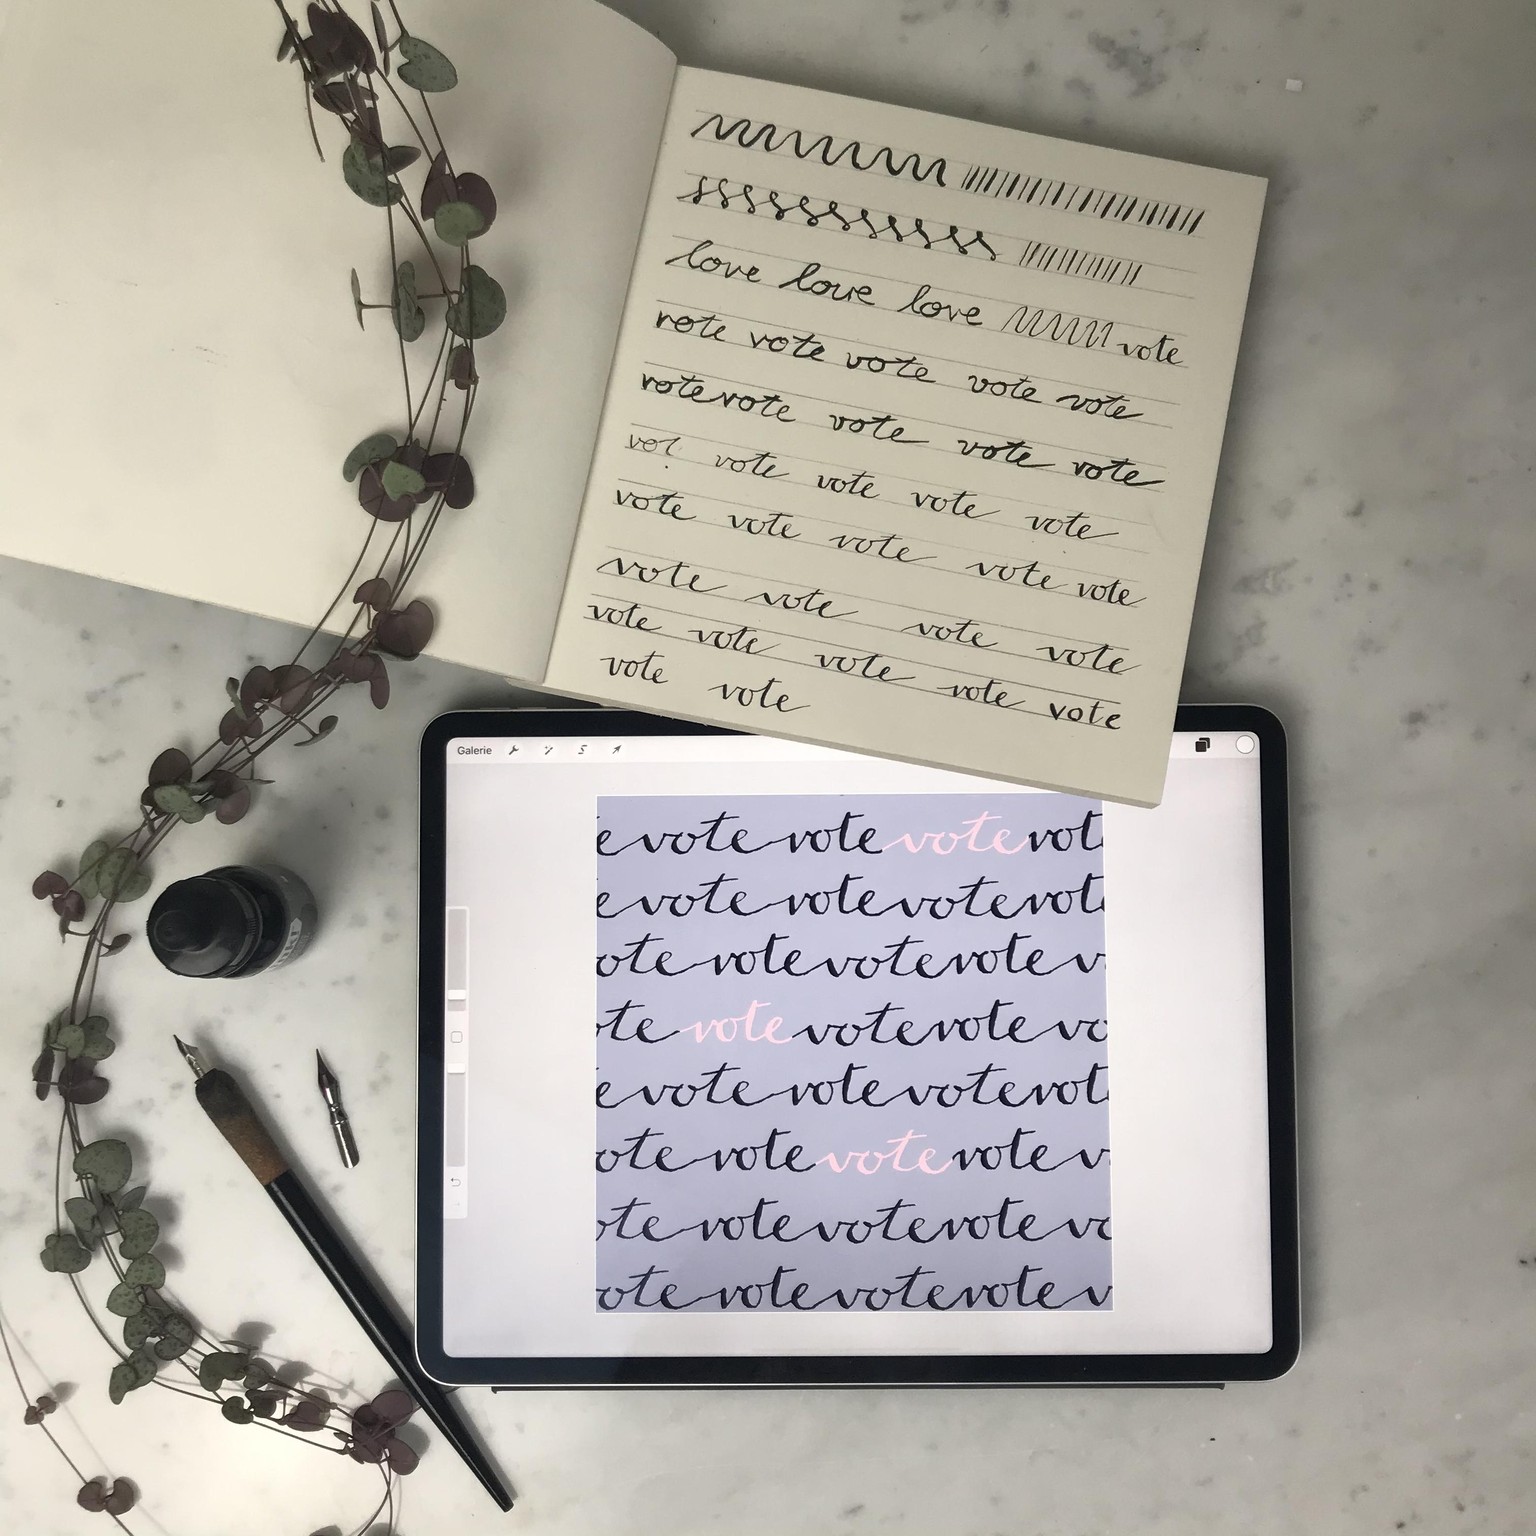 love love love vote
vote vote vote vote vote
vote vote vote vote vote
vot vote vote vote vote
vote vote vote vote vote
vote vote vote vote
vote vote vote vote vote
vote vote
Galerie
e vote vote vote vot
e vote vote vote vote
ote vote vote vote v
ote vote vote vote vo
e vote vote vote vot
ote vote vote vote v
ote vote vote vote vo
ote vote vote vote v